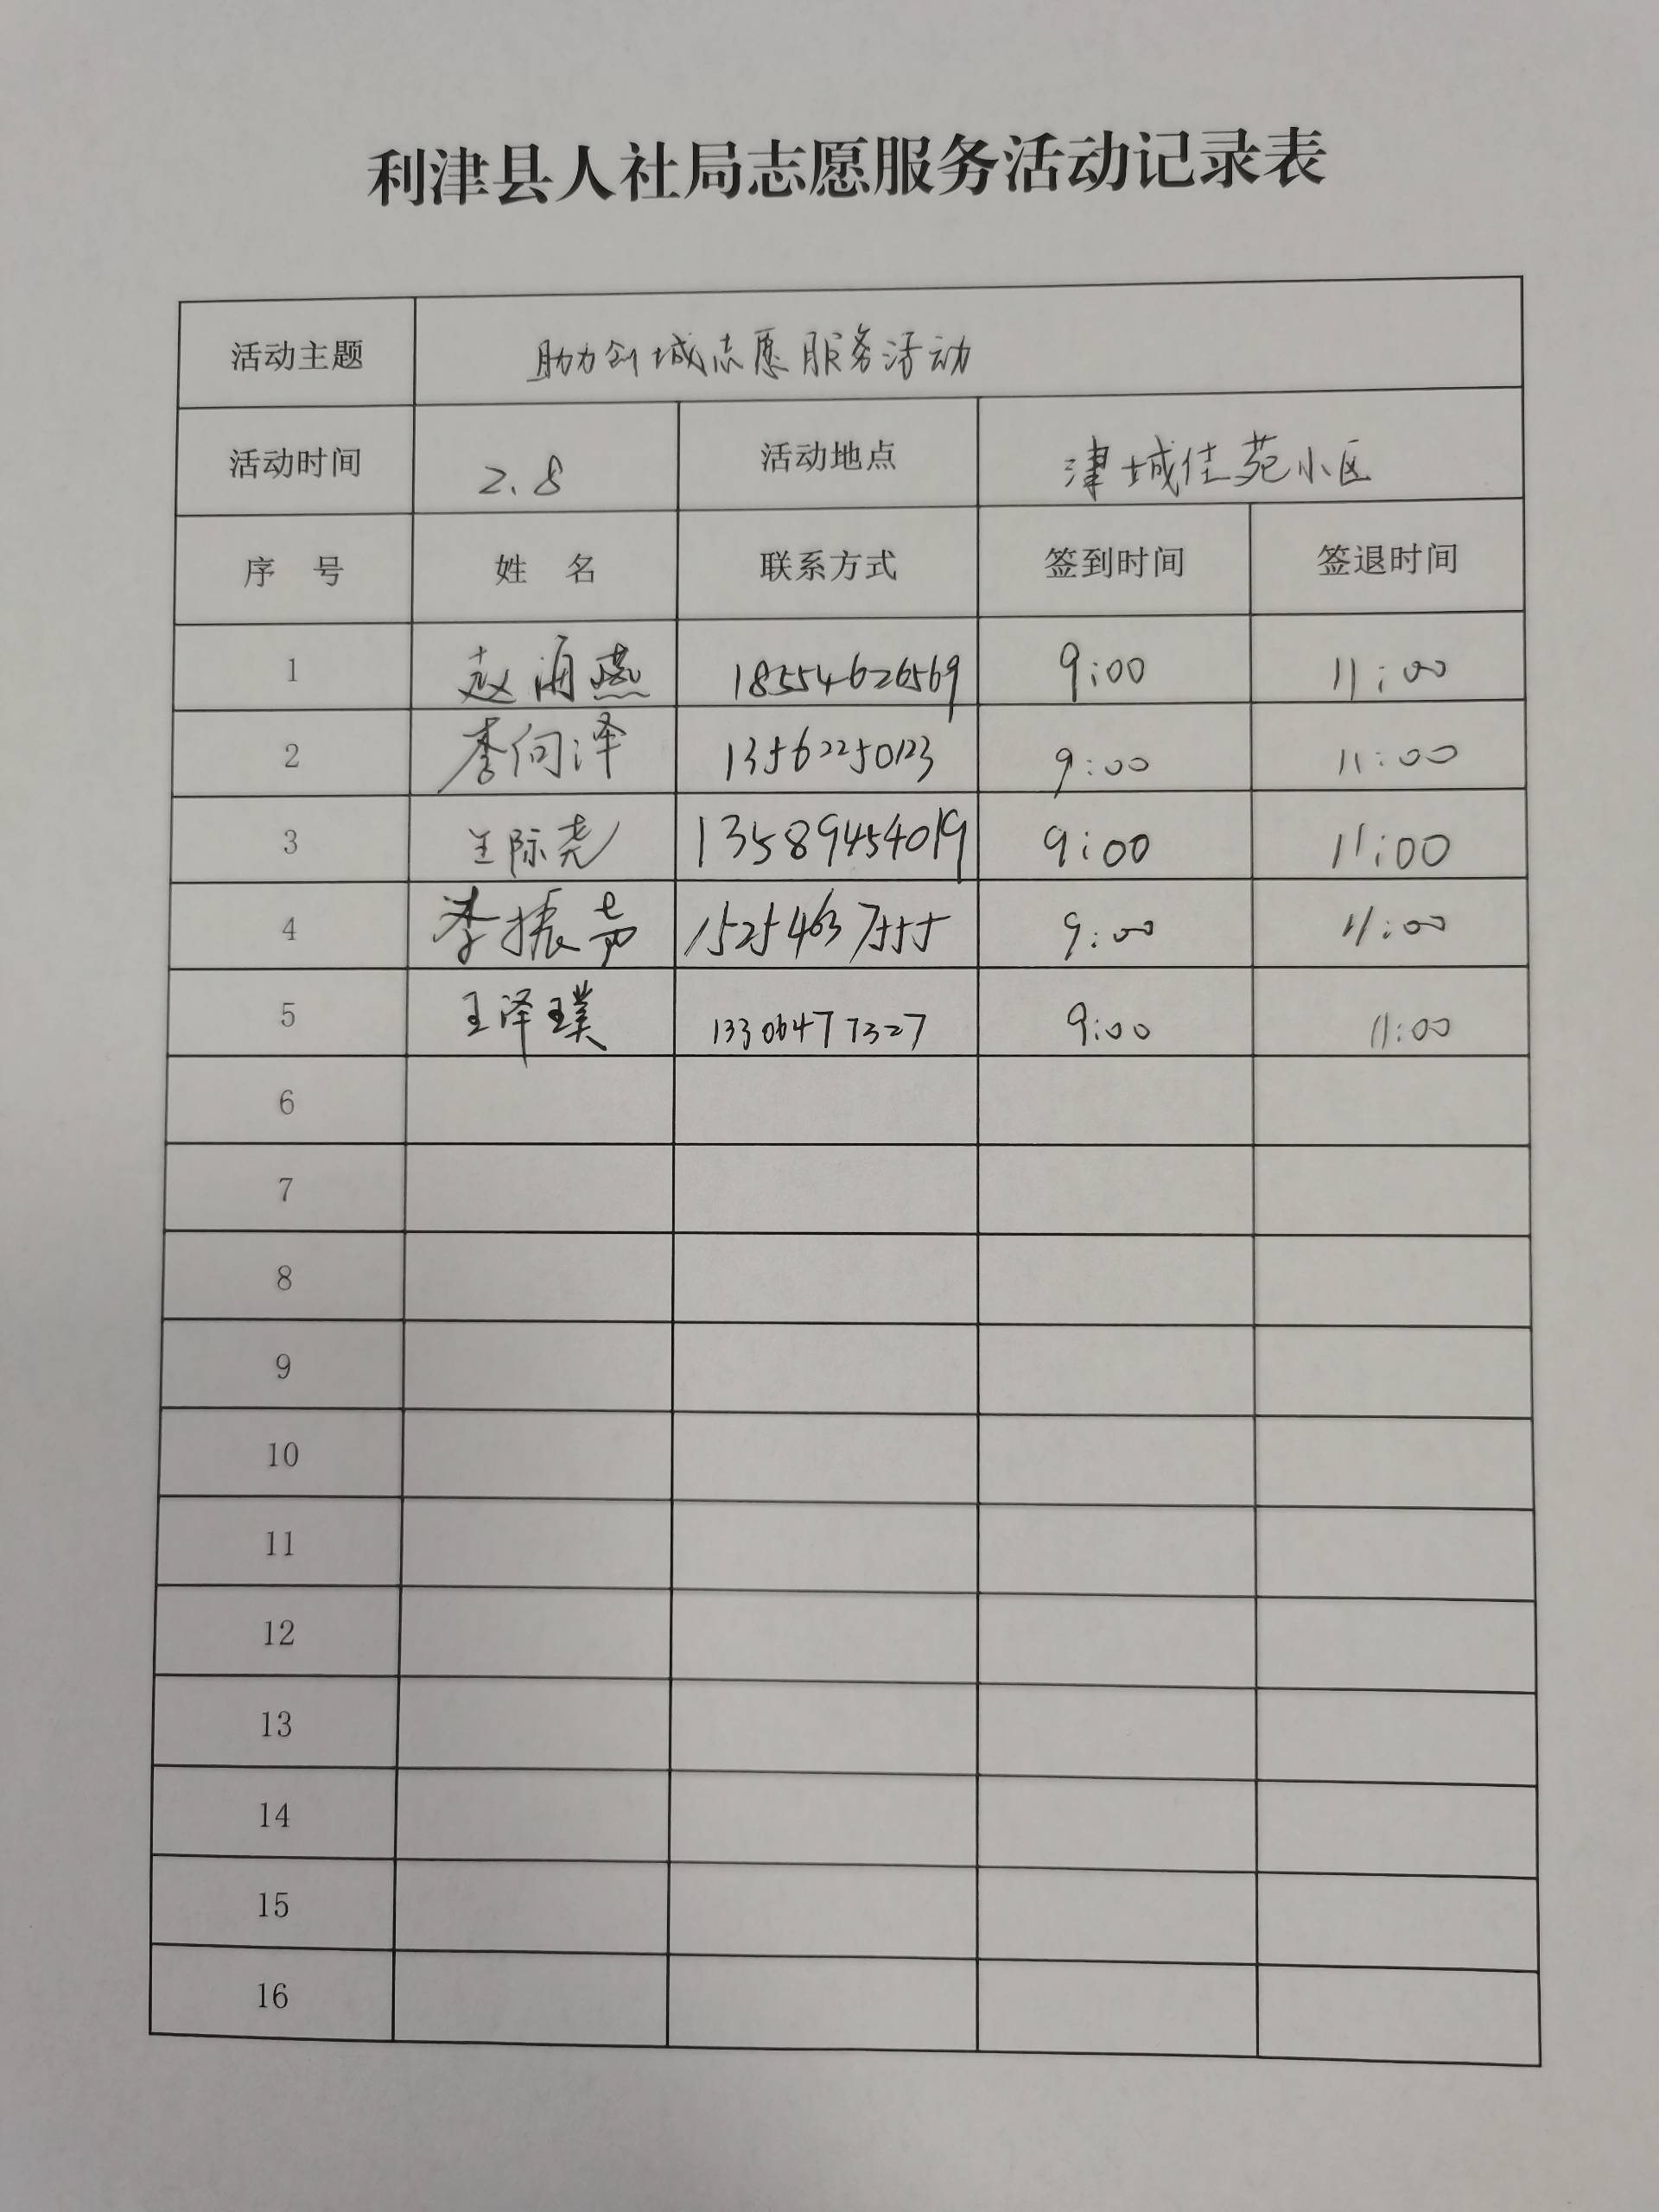 利津县人社局志愿服务活动记录表
活动主题 助力创城志愿服务活动
活动时间 2.8 活动地点 津城佳苑小区
序 号 姓 名 联系方式 签到时间 签退时间
1 赵海燕 18554626569 9:00 11:00
2 李向泽 13562250123 9:00 11:00
3 王际尧 13589454019 9:00 11:00
4 李振 15254637555 9:00 11:00
5 王泽璞 13306477327 9:00 11:00
6
7
8
9
10
11
12
13
14
15
16